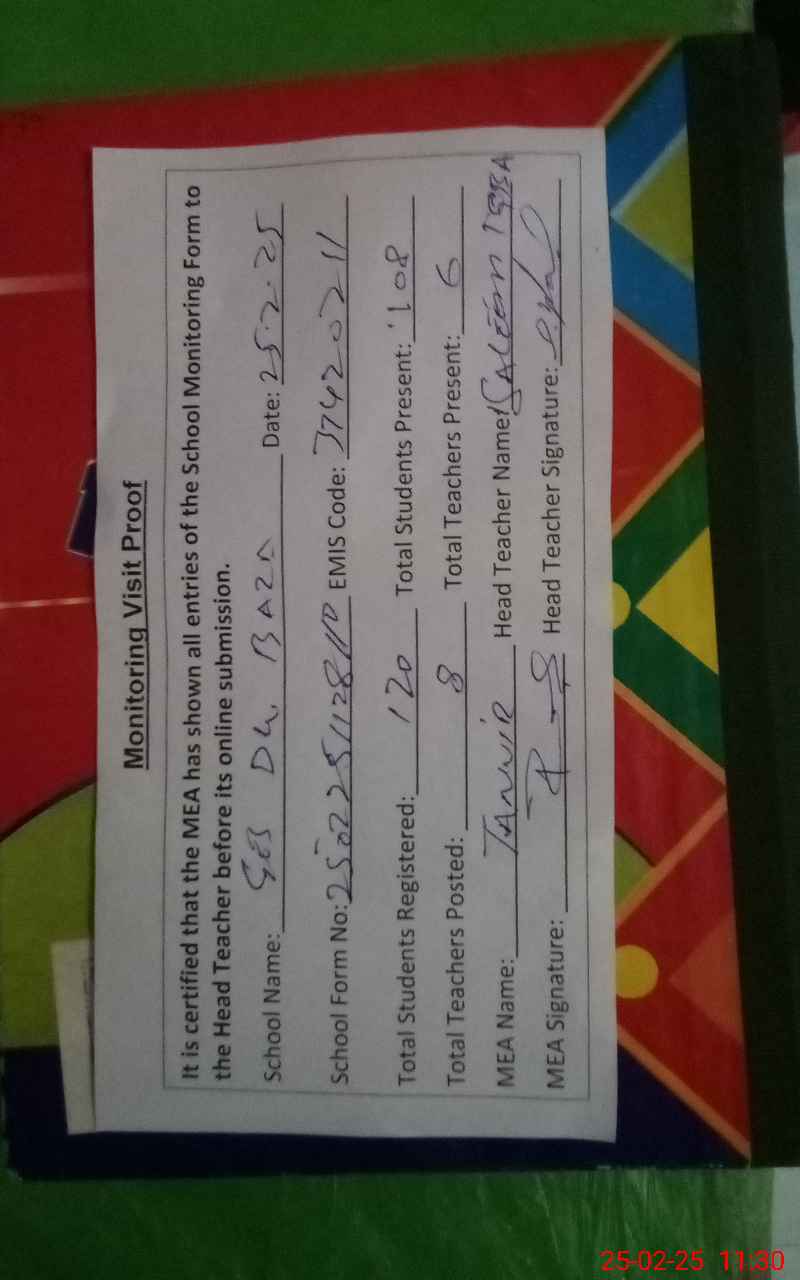 Monitoring Visit Proof
It is certified that the MEA has shown all entries of the School Monitoring Form to
the Head Teacher before its online submission.
School Name: GES Dk. BAZA Date: 25.2.25
School Form No: EMIS Code: 37420211
Total Students Registered: 120 Total Students Present: 108
Total Teachers Posted: 8 Total Teachers Present: 6
MEA Name: TANVIR Head Teacher Name: SALEEM
MEA Signature: Head Teacher Signature:
25-02-25 11:30